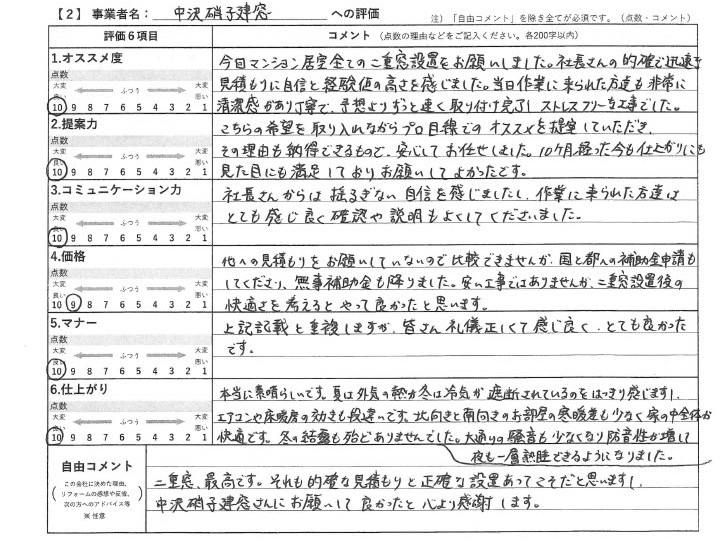 【2】事業者名： 中沢硝子建窓 への評価
注）「自由コメント」を除き全てが必須です。（点数・コメント）
評価6項目
コメント（点数の理由などをご記入ください。各200字以内）
1.オススメ度
点数
大変良い ふつう 大変悪い
10 9 8 7 6 5 4 3 2 1
今回マンション居室全ての二重窓設置をお願いしました。社長さんの的確で迅速な
見積もりに自信と経験値の高さを感じました。当日作業に来られた方達も非常に
清潔感があり丁寧で、予想よりずっと速く取り付け完了しストレスフリーな工事でした。
2.提案力
点数
大変良い ふつう 大変悪い
10 9 8 7 6 5 4 3 2 1
こちらの希望を取り入れながらプロ目線でのオススメを提案していただき、
その理由も納得できるもので、安心してお任せしました。10ヶ月経った今も仕上がりにも
見た目にも満足しておりお願いしてよかったです。
3.コミュニケーション力
点数
大変良い ふつう 大変悪い
10 9 8 7 6 5 4 3 2 1
社長さんからは揺るぎない自信を感じましたし、作業に来られた方達は
とても感じ良く確認や説明もよくしてくださいました。
4.価格
点数
大変良い ふつう 大変悪い
10 9 8 7 6 5 4 3 2 1
他への見積もりをお願いしていないので比較できませんが、国と都への補助金申請も
してくださり、無事補助金も降りました。安い工事ではありませんが、二重窓設置後の
快適さを考えるとやって良かったと思います。
5.マナー
点数
大変良い ふつう 大変悪い
10 9 8 7 6 5 4 3 2 1
上記記載と重複しますが、皆さん礼儀正しくて感じ良く、とても良かった
です。
6.仕上がり
点数
大変良い ふつう 大変悪い
10 9 8 7 6 5 4 3 2 1
本当に素晴らしいです。夏は外気の熱が冬は冷気が遮断されているのをはっきり感じますし、
エアコンや床暖房の効きも段違いです。北向きと南向きのお部屋の寒暖差も少なく家の中全体が
快適です。冬の結露も殆どありませんでした。大通りの騒音も少なくなり防音性が増して
夜も一層熟睡できるようになりました。
自由コメント
（この会社に決めた理由、
リフォームの感想や反省、
次の方へのアドバイス等）
※任意
二重窓、最高です。それも的確な見積もりと正確な設置あってこそだと思いますし、
中沢硝子建窓さんにお願いして良かったと心より感謝します。